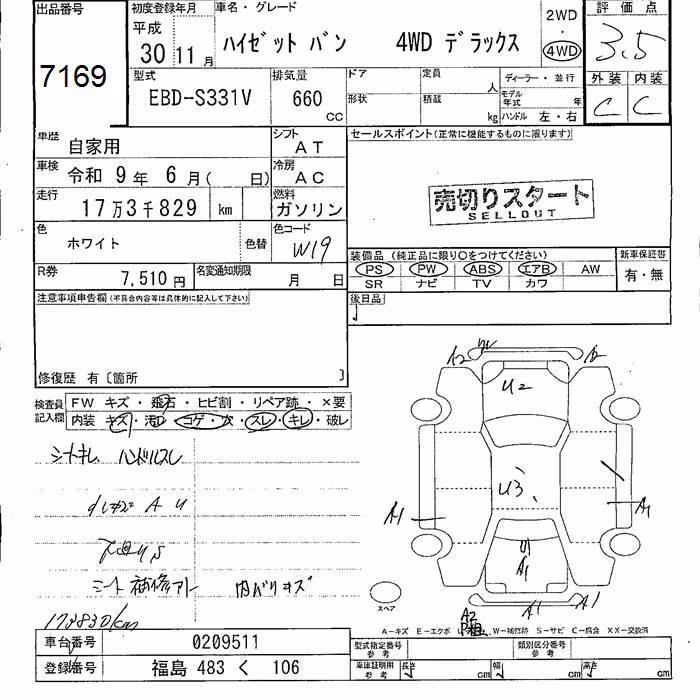 出品番号
7169
初度登録年月
平成
30 11 月
車名・グレード
ハイゼット バン 4WD デラックス
2WD
・
4WD
評価点
3.5
外装 内装
C C
型式
EBD-S331V
排気量
660
CC
ドア
形状
定員
人
積載
kg
ディーラー・並行
モデル年式 年
ハンドル 左・右
車歴
自家用
シフト
AT
車検
令和 9年 6月( 日)
冷房
AC
走行
17万3千829 km
燃料
ガソリン
色
ホワイト
色替
色コード
W19
R券
7,510円
名変通知期限
月 日
セールスポイント(正常に機能するものに限ります)
売切りスタート
SELLOUT
装備品 (純正品に限り〇をつけてください)
PS PW ABS エアB AW
SR ナビ TV カワ
新車保証書
有・無
後日品
注意事項申告欄(不具合内容等は具体的に記入して下さい)
修復歴 有〔箇所 〕
検査員記入欄
FW キズ・飛石・ヒビ割・リペア跡・×要
内装 キズ・汚れ・コゲ・穴・スレ・キレ・破レ
シートキレ ハンドルスレ
A U
下廻りS
シート補修アリ 内バリキズ
173830km
A2
A2
U2
U3
A1
A1
U1
A1
A1
A1
スペア
A2
A-キズ E-エクボ W-補修跡 S-サビ C-腐食 XX-交換済
車台番号
0209511
登録番号
福島 483 く 106
型式指定番号
参考
類別区分番号
参考
車庫証明用
参考
長さ cm 幅 cm 高さ cm